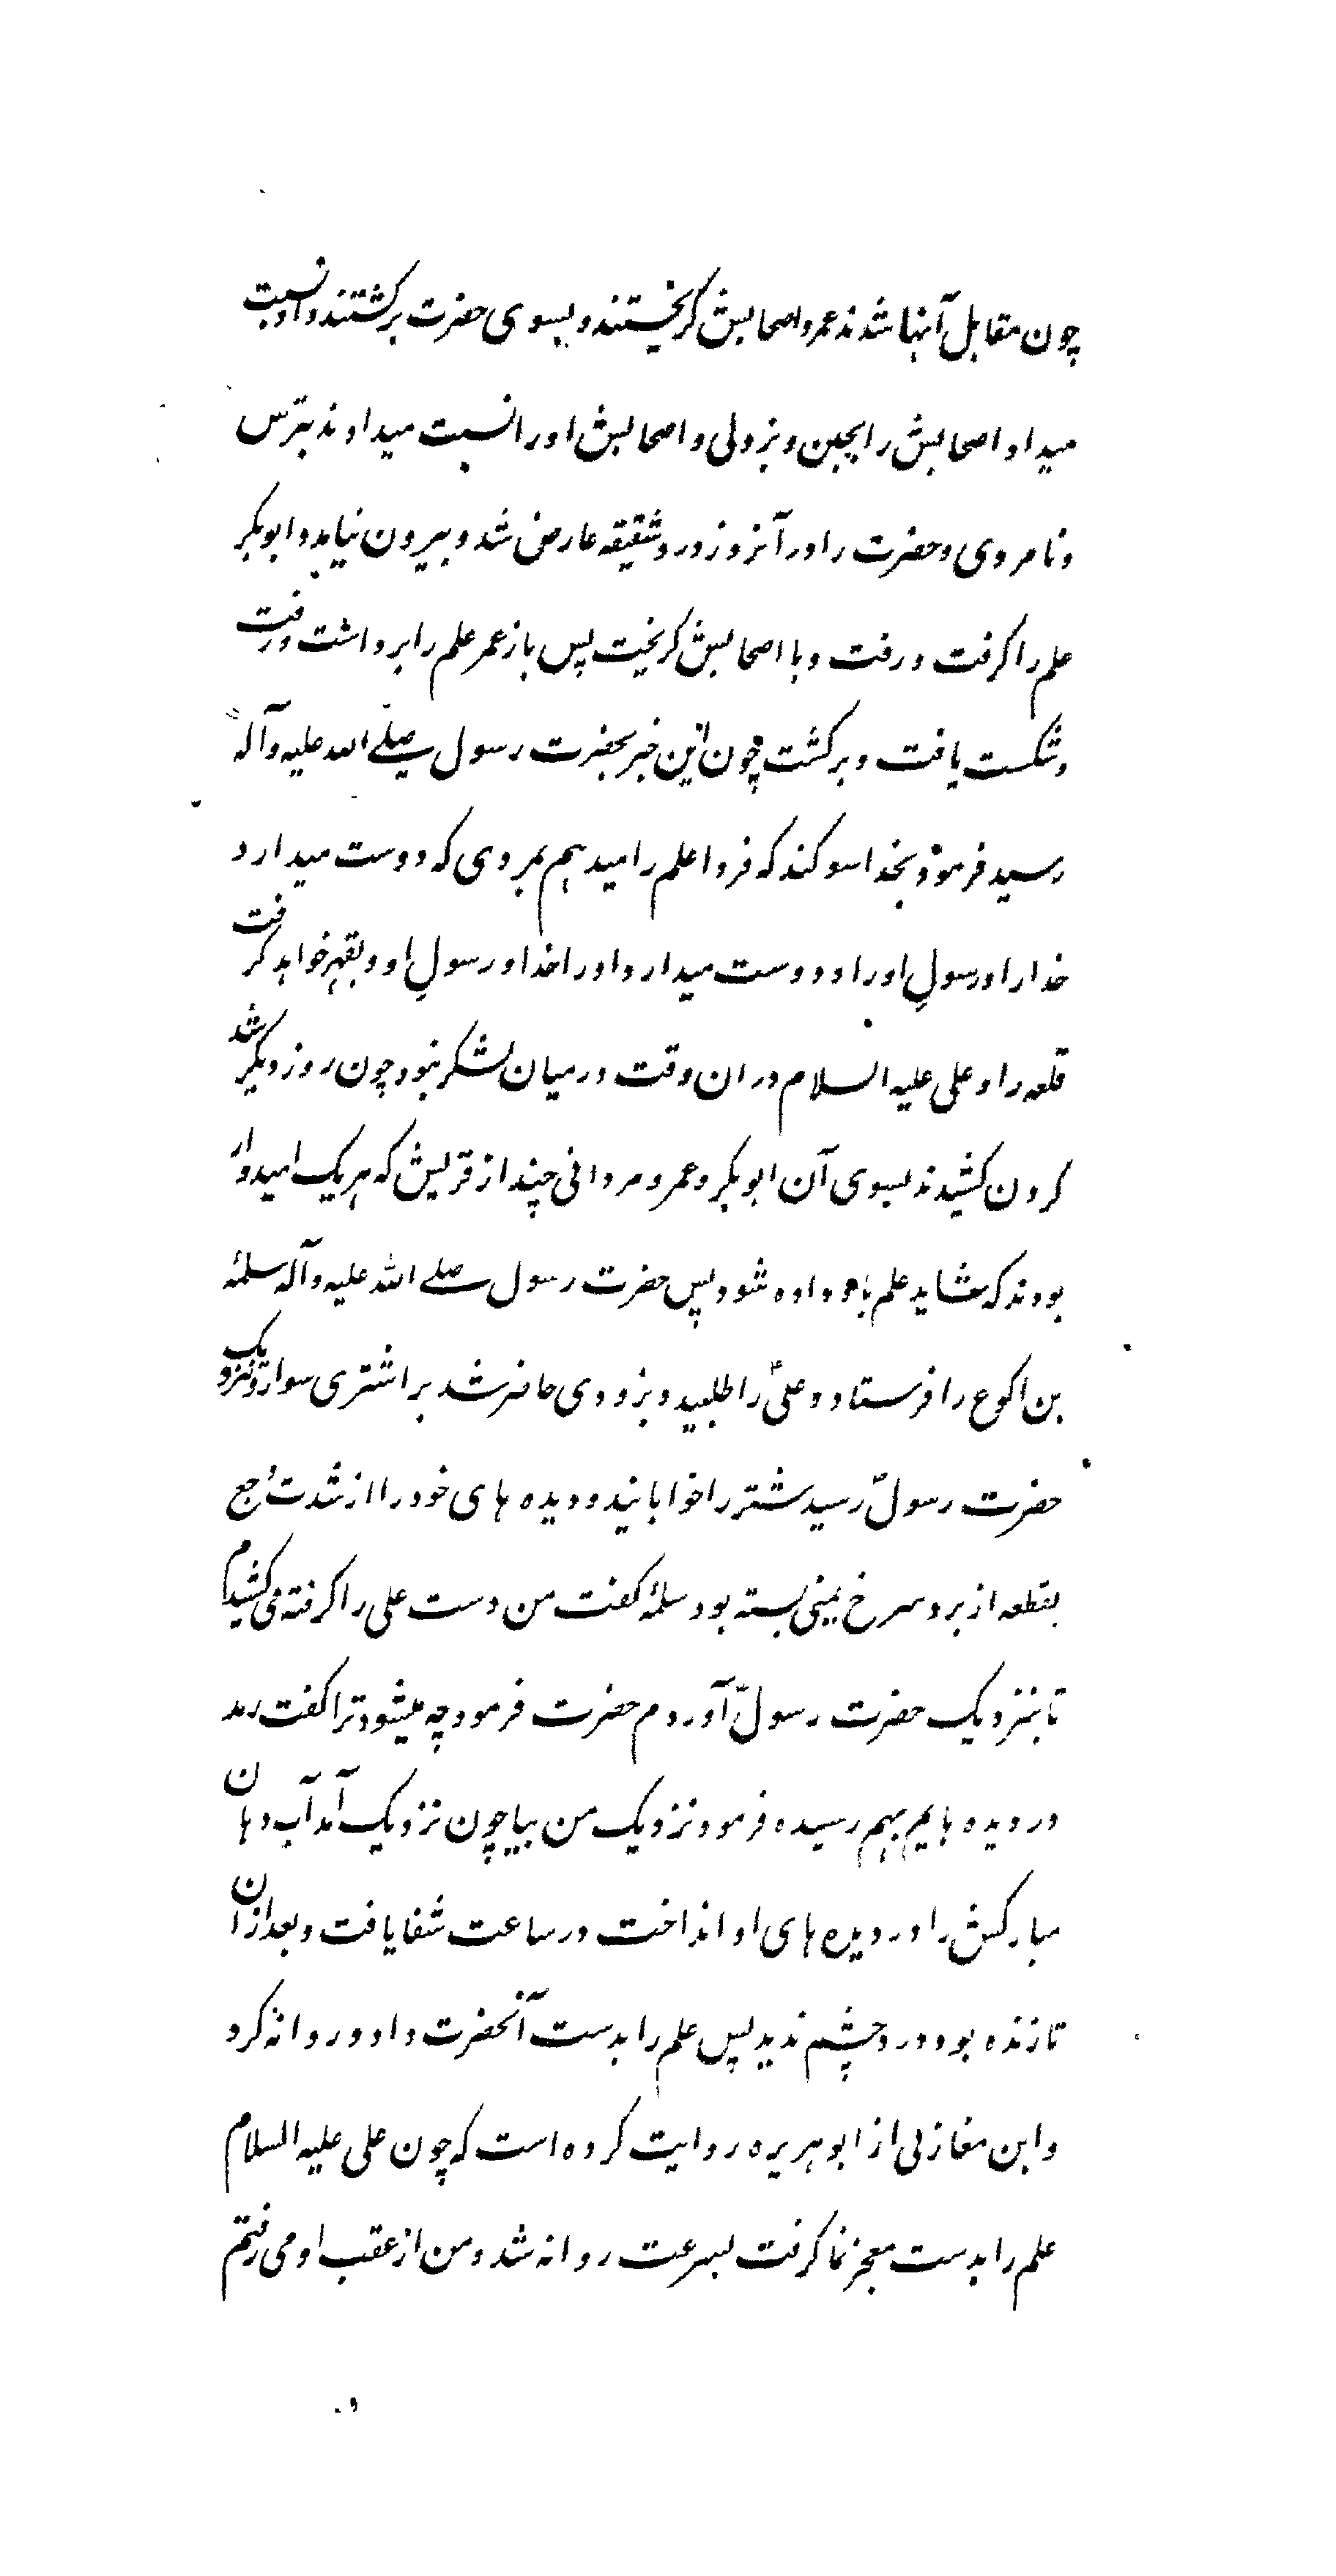 چون مقابل آنها شدند عمر و اصحابش گریختند و بسوی حضرت برگشتند و او نسبت
میداد اصحابش را بجبن و بزدلی و اصحابش او را نسبت میدادند بترس
و نامردی و حضرت را در آنروز درد شقیقه عارض شد و بیرون نیامد و ابوبکر
علم را گرفت و رفت و با اصحابش گریخت پس باز عمر علم را برداشت و رفت
و شکست یافت و برگشت چون این خبر بحضرت رسول صلے الله علیه و آله
رسید فرمود بخدا سوگند که فردا علم را میدهم بمردی که دوست میدارد
خدا را و رسولِ او را و دوست میدارد او را خدا و رسولِ او و بقهر خواهد گرفت
قلعه را و علی علیه السلام در ان وقت در میان لشکر نبود چون روز دیگر شد
گردن کشیدند بسوی آن ابوبکر و عمر و مردانی چند از قریش که هر یک امیدوار
بودند که شاید علم باو داده شود پس حضرت رسول صلے الله علیه و آله سلمهٔ
بن اکوع را فرستاد و علیؑ را طلبید و بزودی حاضر شد بر اشتری سوار و نزدیک
حضرت رسولؐ رسید شتر را خوابانید و دیده های خود را از شدت وجع
بقطعه از برد سرخ یمنی بسته بود سلمهٔ گفت من دست علی را گرفته می کشیدم
تا بنزدیک حضرت رسولؐ آوردم حضرت فرمود چه میشود ترا گفت رمد
در دیده هایم بهم رسیده فرمود نزدیک من بیا چون نزدیک آمد آب دهان
مبارکش را در دیده های او انداخت در ساعت شفا یافت و بعد از ان
تا زنده بود درد چشم ندید پس علم را بدست آنحضرت داد و روانه کرد
و ابن مغازلی از ابو هریره روایت کرده است که چون علی علیه السلام
علم را بدست معجز نما گرفت بسرعت روانه شد و من از عقب او می رفتم